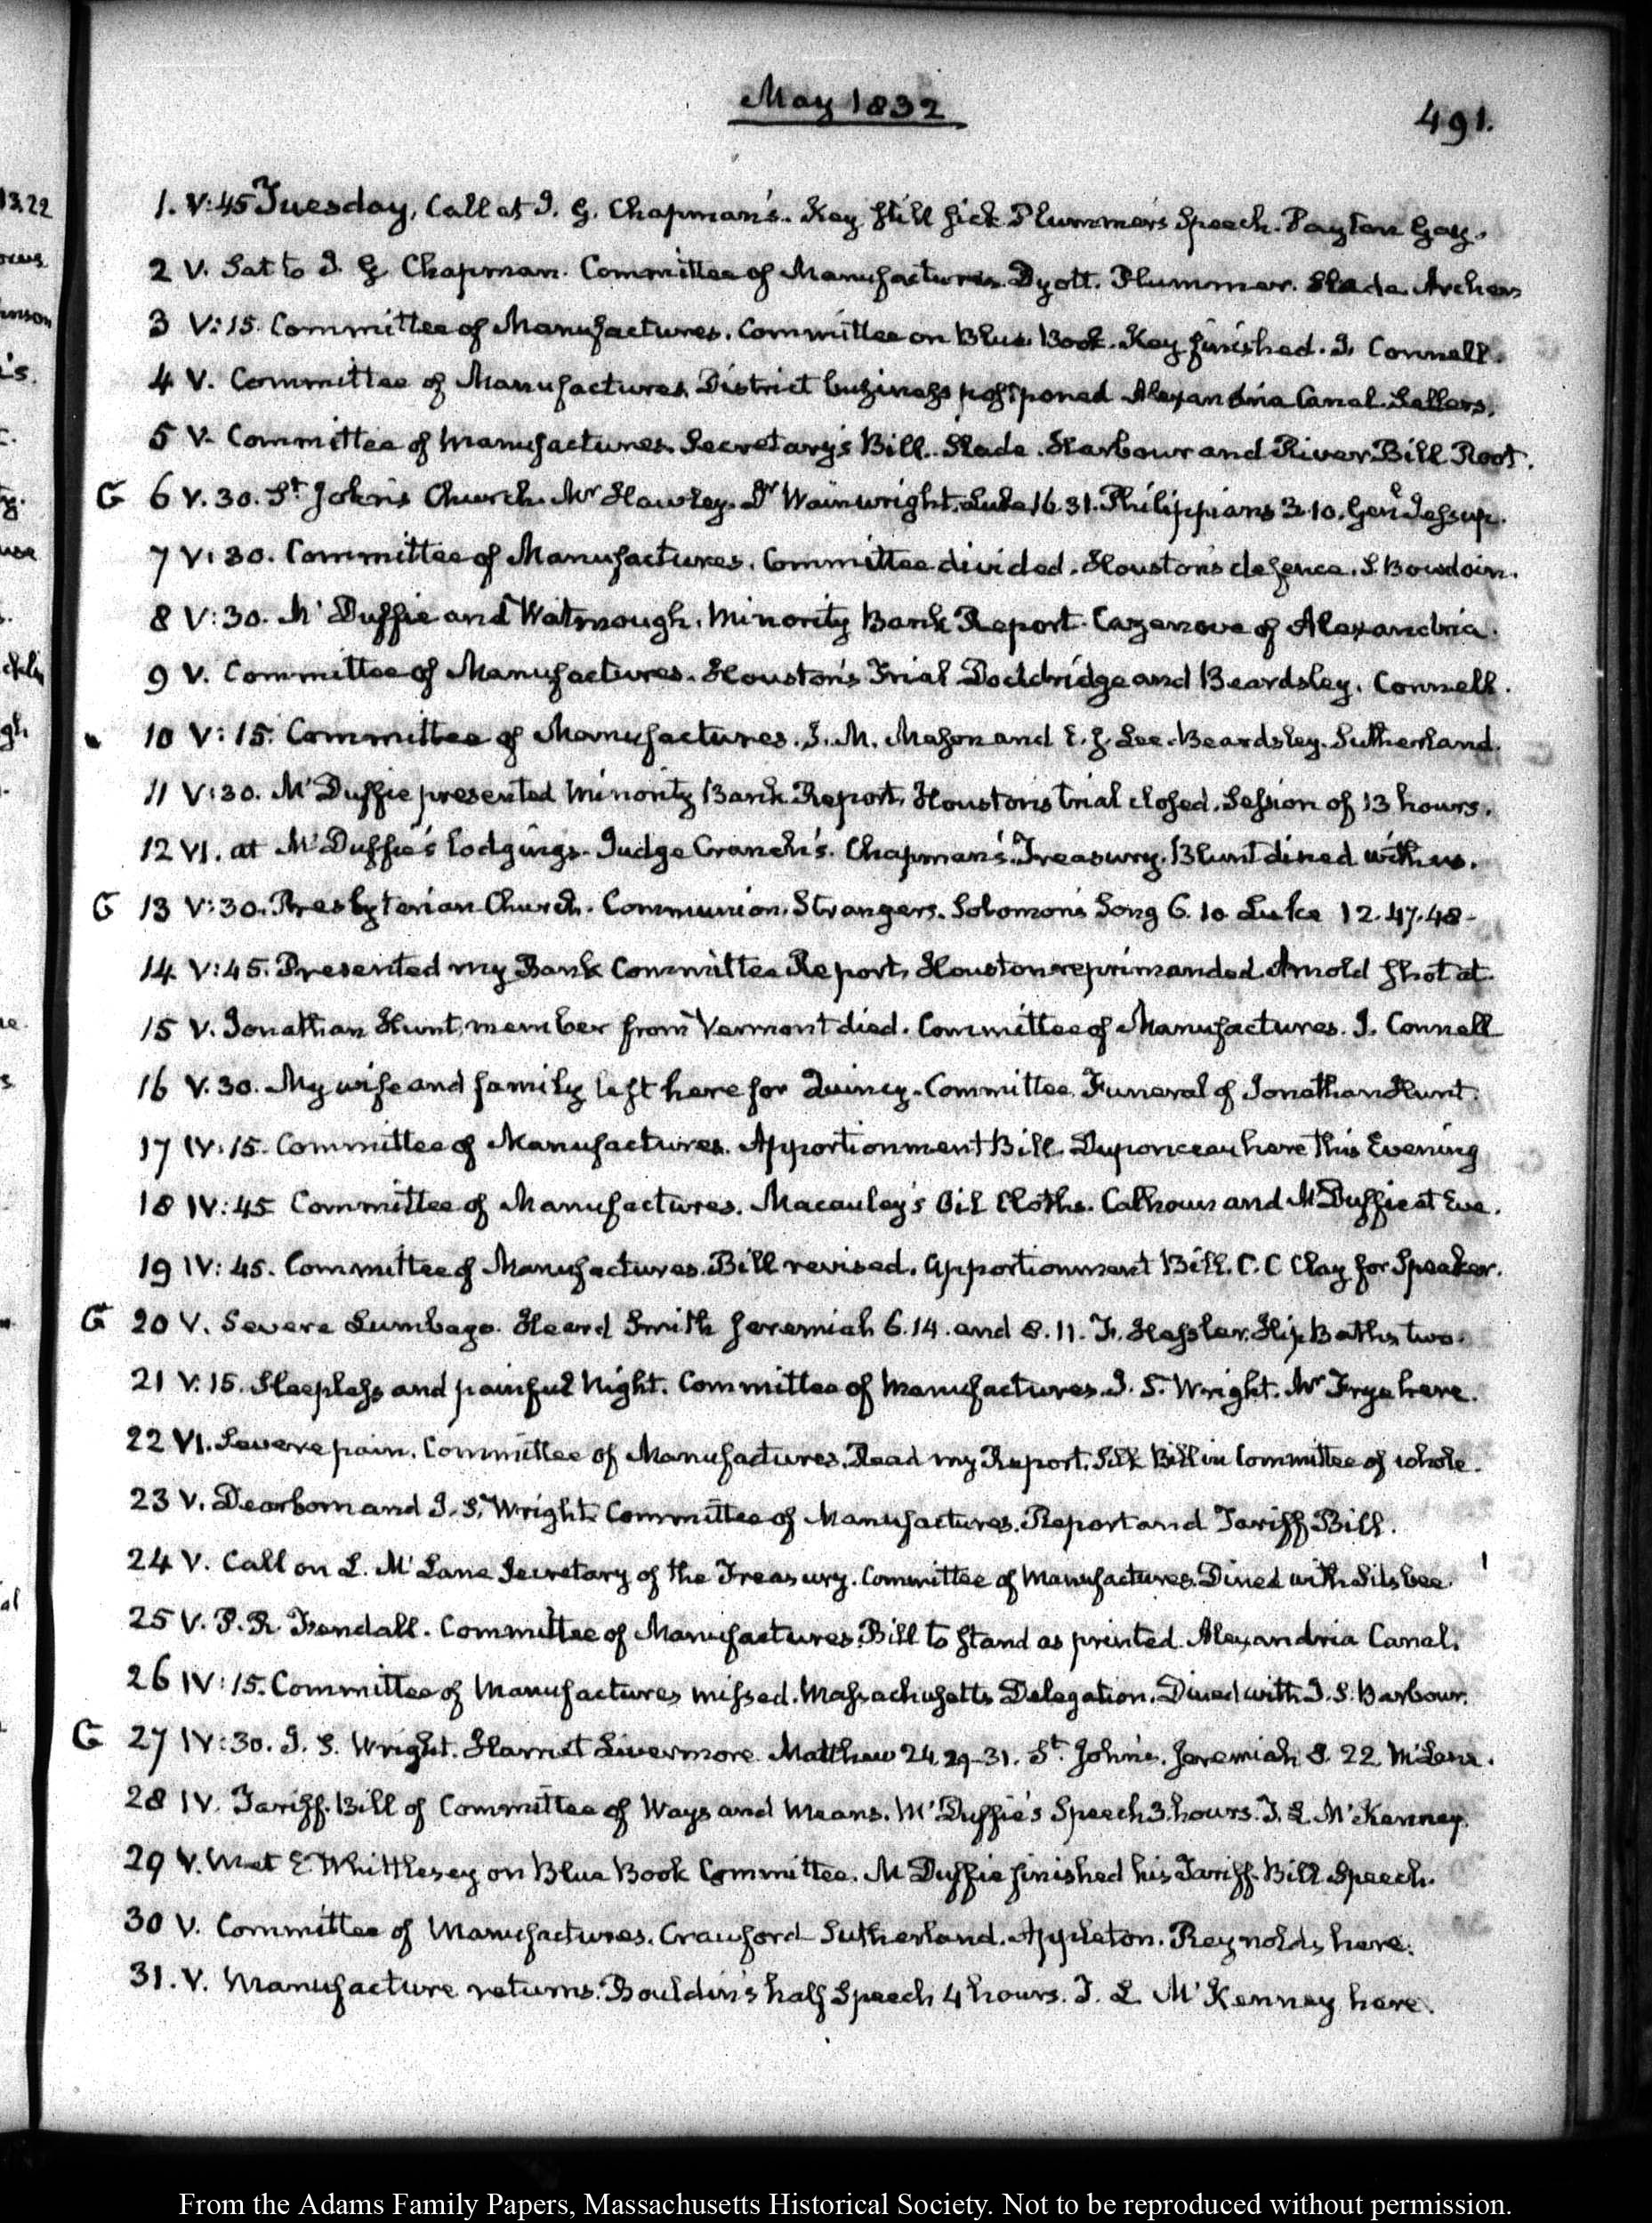 May 1832
491.
1. V:45 Tuesday, Call at J. G. Chapman's. Key still sick Plummer's Speech. Payton Gay.
2 V. Sat to J. G Chapman. Committee of Manufactures. Dyott. Plummer. Slade. Archer
3 V:15. Committee of Manufactures. Committee on Blue Book. Key finished. J. Connell.
4 V. Committee of Manufactures. District business postponed Alexandria Canal. Sellers.
5 V. Committee of manufactures. Secretary's Bill. Slade. Harbour and River Bill Root.
G 6 V.30. St John's Church. Mr Hawley. Dr Wainwright. Luke 16.31. Philippians 3.10. Genl Jessup.
7 V:30. Committee of Manufactures. Committee divided. Houston's defence. J. Bowdoin.
8 V:30. McDuffie and Watmough. Minority Bank Report. Cazenove of Alexandria.
9 V. Committee of Manufactures. Houston's Trial Doddridge and Beardsley. Connell.
10 V:15. Committee of Manufactures. J. M. Mason and E. J. Lee. Beardsley. Sutherland.
11 V:30. McDuffie presented minority Bank Report. Houston's trial closed. Session of 13 hours.
12 VI. at McDuffie's lodgings. Judge Cranch's. Chapman's. Treasury. Blunt dined with us.
G 13 V:30. Presbyterian Church. Communion. Strangers. Solomon's Song 6.10 Luke 12.47.48-
14 V:45. Presented my Bank Committee Report. Houston reprimanded. Arnold shot at.
15 V. Jonathan Hunt, member from Vermont died. Committee of Manufactures. J. Connell
16 V.30. My wife and family left here for Quincy. Committee. Funeral of Jonathan Hunt.
17 IV:15. Committee of Manufactures. Apportionment Bill. Duponceau here this Evening
18 IV:45 Committee of Manufactures. Macauley's Oil Cloths. Calhoun and McDuffie at Eve.
19 IV:45. Committee of Manufactures. Bill revised. Apportionment Bill. C. C Clay for Speaker.
G 20 V. Severe Lumbago. Heard Smith Jeremiah 6.14. and 8.11. F. Hassler. Hip Baths two.
21 V:15. Sleepless and painful night. Committee of manufactures. J. S. Wright. Mr Frye here.
22 VI. Severe pain. Committee of Manufactures. Read my Report. Silk Bill in Committee of whole.
23 V. Dearborn and J. S. Wright. Committee of Manufactures. Report and Tariff Bill.
24 V. Call on L. McLane Secretary of the Treasury. Committee of Manufactures. Dined with Silsbee.
25 V. P. R. Fendall. Committee of Manufactures. Bill to stand as printed. Alexandria Canal.
26 IV:15. Committee of Manufactures missed. Massachusetts Delegation. Dined with J. S. Barbour.
G 27 IV:30. J. S. Wright. Harriet Livermore. Matthew 24.29-31. St. John's. Jeremiah 8. 22 McLane.
28 IV. Tariff. Bill of Committee of Ways and Means. McDuffie's Speech 3. hours. T. L. McKenney.
29 V. Met E Whittlesey on Blue Book Committee. McDuffie finished his Tariff Bill Speech.
30 V. Committee of Manufactures. Crawford Sutherland. Appleton. Reynolds here.
31. V. Manufacture returns. Bouldin's half Speech 4 hours. T. L McKenney here.
From the Adams Family Papers, Massachusetts Historical Society. Not to be reproduced without permission.